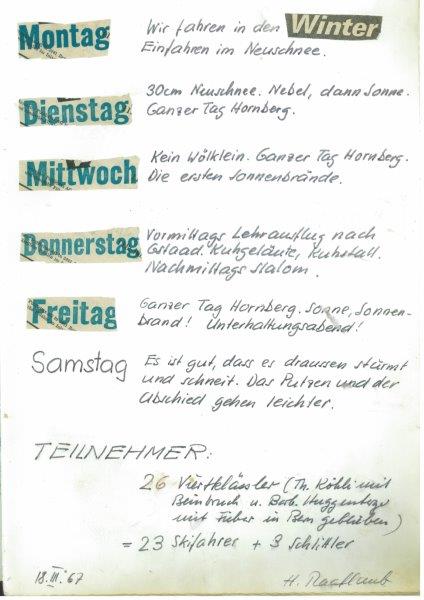 Montag Wir fahren in den Winter
Einfahren im Neuschnee.
Dienstag 30cm Neuschnee. Nebel, dann Sonne.
Ganzer Tag Hornberg.
Mittwoch Kein Wölklein. Ganzer Tag Hornberg.
Die ersten Sonnenbrände.
Donnerstag Vormittags Lehrausflug nach
Gstaad. Kuhgeläute, Kuhstall.
Nachmittags Slalom.
Freitag Ganzer Tag Hornberg. Sonne, Sonnen-
brand! Unterhaltungsabend!
Samstag Es ist gut, dass es draussen stürmt
und schneit. Das Putzen und der
Abschied gehen leichter.
TEILNEHMER:
26 Viertklässler (Th.Köhli mit
Beinbruch u. Barb. Huggenberger
mit Fieber in Bern geblieben)
= 23 Skifahrer + 3 Schlittler
18. III. 67 H. Raaflaub